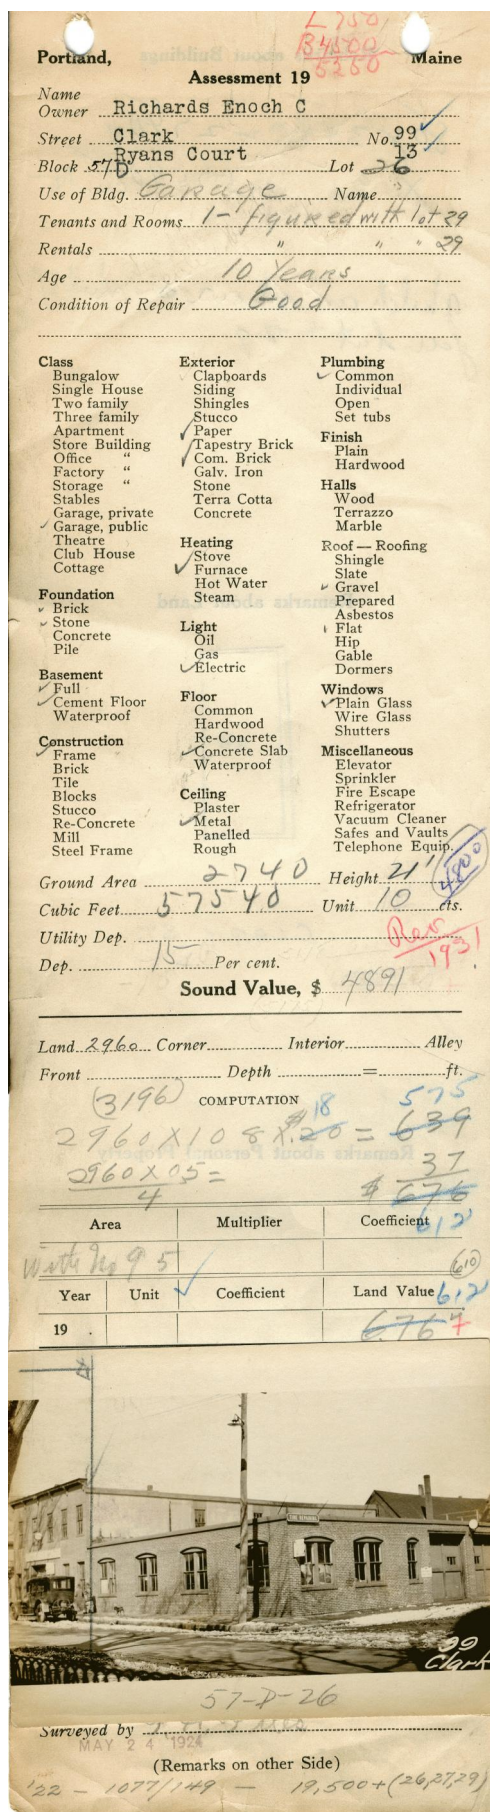 L 750
B 4500
5250
Portland, Maine
Assessment 19
Name
Owner Richards Enoch C
Street Clark No. 99
Ryans Court 13
Block 57D Lot 26
Use of Bldg. Garage Name
Tenants and Rooms 1 - figured with lot 29
Rentals " " " 29
Age 10 Years
Condition of Repair Good
Class
Bungalow
Single House
Two family
Three family
Apartment
Store Building
Office "
Factory "
Storage "
Stables
Garage, private
Garage, public
Theatre
Club House
Cottage
Foundation
Brick
Stone
Concrete
Pile
Basement
Full
Cement Floor
Waterproof
Construction
Frame
Brick
Tile
Blocks
Stucco
Re-Concrete
Mill
Steel Frame
Exterior
Clapboards
Siding
Shingles
Stucco
Paper
Tapestry Brick
Com. Brick
Galv. Iron
Stone
Terra Cotta
Concrete
Heating
Stove
Furnace
Hot Water
Steam
Light
Oil
Gas
Electric
Floor
Common
Hardwood
Re-Concrete
Concrete Slab
Waterproof
Ceiling
Plaster
Metal
Panelled
Rough
Plumbing
Common
Individual
Open
Set tubs
Finish
Plain
Hardwood
Halls
Wood
Terrazzo
Marble
Roof — Roofing
Shingle
Slate
Gravel
Prepared
Asbestos
Flat
Hip
Gable
Dormers
Windows
Plain Glass
Wire Glass
Shutters
Miscellaneous
Elevator
Sprinkler
Fire Escape
Refrigerator
Vacuum Cleaner
Safes and Vaults
Telephone Equip.
4800
Ground Area 2740 Height 21'
Cubic Feet 57540 Unit 10 cts.
Utility Dep.
Rev 1931
Dep. 15 Per cent.
Sound Value, $ 4891
Land 2960 Corner Interior Alley
Front Depth = ft.
(3196) COMPUTATION 575
18
2960 X 108 X .20 = 639
2960 X 05 = 37
4 $ 676
Area Multiplier Coefficient 612
With No 95
610
Year Unit Coefficient Land Value 612
19 . 676 7
TIRE REPAIRING
99
Clark
57-D-26
Surveyed by
MAY 24 1924
(Remarks on other Side)
'22 - 1077/149 - 19,500 + (26,27,29)